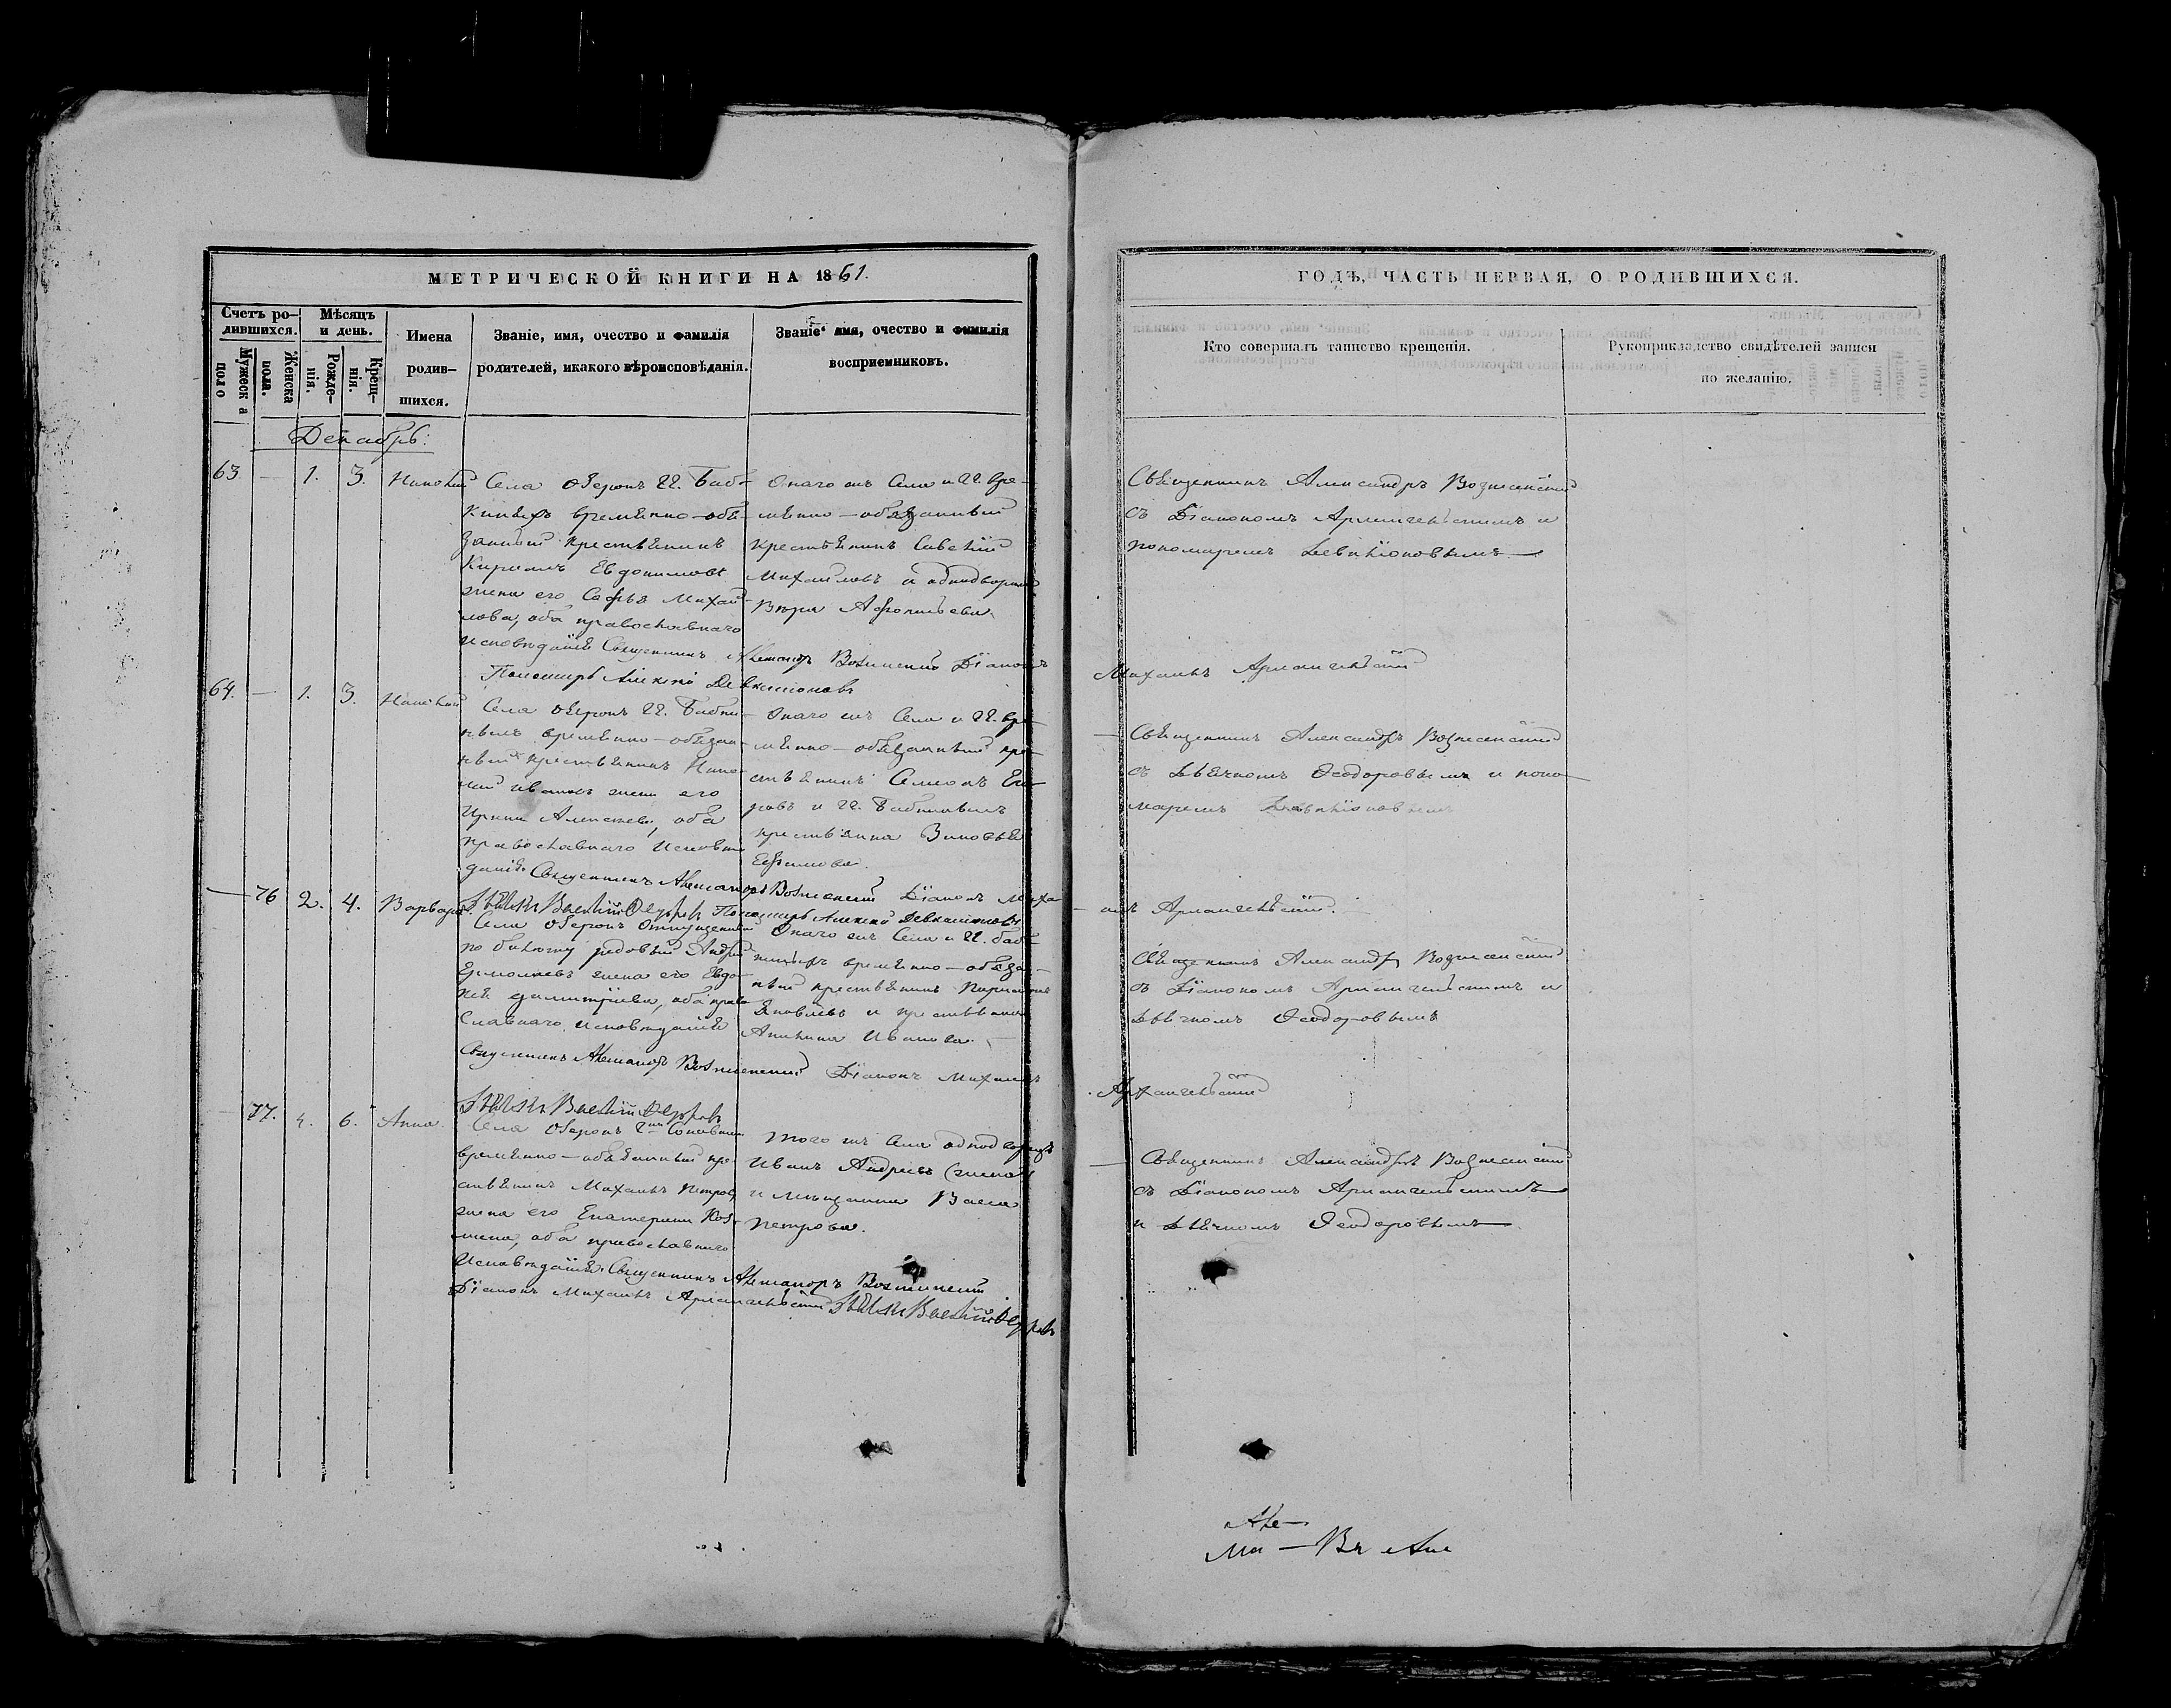 МЕТРИЧЕСКОЙ КНИГИ НА 1861.
Счетъ ро-
дившихся.
Мужеска
пого
Женска
пола.
Мѣсяцъ
и день.
Рожде-
нія.
Крещ-
нія.
Имена
родив-
шихся.
Званіе, имя, очество и фамилія
родителей, и какого вѣроисповѣданія.
Званіе имя, очество и фамилія
восприемниковъ.
Декабрь:
63 — 1. 3.
Села Озерокъ Гг. Баб-
киныхъ временно-обя-
занный крестьянинъ
Кириллъ Евдокимовъ
жена его Софья Михай
лова, оба православнаго
исповѣданія Священникъ Александръ Вознесенскій Діаконъ
Пономарь Алексѣй Левкиіоновъ
Онаго жъ Села и Гг. вре-
менно-обязанный
крестьянинъ Савелій
Михайловъ и
Вѣра
64. — 1. 3.
Села Озерокъ Гг. Бабки
ныхъ временно-обязан
ный крестьянинъ
Ивановъ жена его
Ирина Алексѣева, оба
православнаго исповѣ
данія Священникъ Александръ Вознесенскій Діаконъ Миха
Онаго жъ Села и Гг. вре
менно-обязанный кре
стьянинъ Семенъ Его
ровъ и Гг. Бабкиныхъ
крестьянка Зиновья
Ефимова.
— 76 2. 4. Варвара
Села Озерокъ Отпущенный
по билету рядовый Андрей
Ермолаевъ жена его Евдо-
кія Димитріева, оба право
славнаго исповѣданія
Священникъ Александръ Вознесенскій Діаконъ Михаилъ
Онаго жъ Села и Гг. Баб
киныхъ временно-обяза-
ный крестьянинъ
Яковлевъ и крестьянка
Ивановна.
77. 4. 6. Анна
Села Озерокъ
временно-обязанный кре
стьянинъ Михаилъ Петровъ,
жена его Екатерина Коз-
мина, оба православнаго
Исповѣданія Священникъ Александръ Вознесенскій
Діаконъ Михаилъ Архангельскій
Того жъ Села однодворецъ
Иванъ Андреевъ
и мѣщанка Васса
Петрова.
ГОДЪ, ЧАСТЬ ПЕРВАЯ, О РОДИВШИХСЯ.
Кто совершалъ таинство крещенія.
Рукоприкладство свидѣтелей записи
по желанію.
Священникъ Александръ Вознесенскій
съ Діакономъ Архангельскимъ и
пономаремъ Левкиіоновымъ
Михаилъ Архангельскій
Священникъ Александръ Вознесенскій
съ Дьячкомъ Ѳеодоровымъ и поно
маремъ Левкиіоновымъ
илъ Архангельскій.
Священникъ Александръ Вознесенскій
съ Діакономъ Архангельскимъ и
Дьячкомъ Ѳеодоровымъ
Архангельскій
Священникъ Александръ Вознесенскій
съ Діакономъ Архангельскимъ
и Дьячкомъ Ѳеодоровымъ